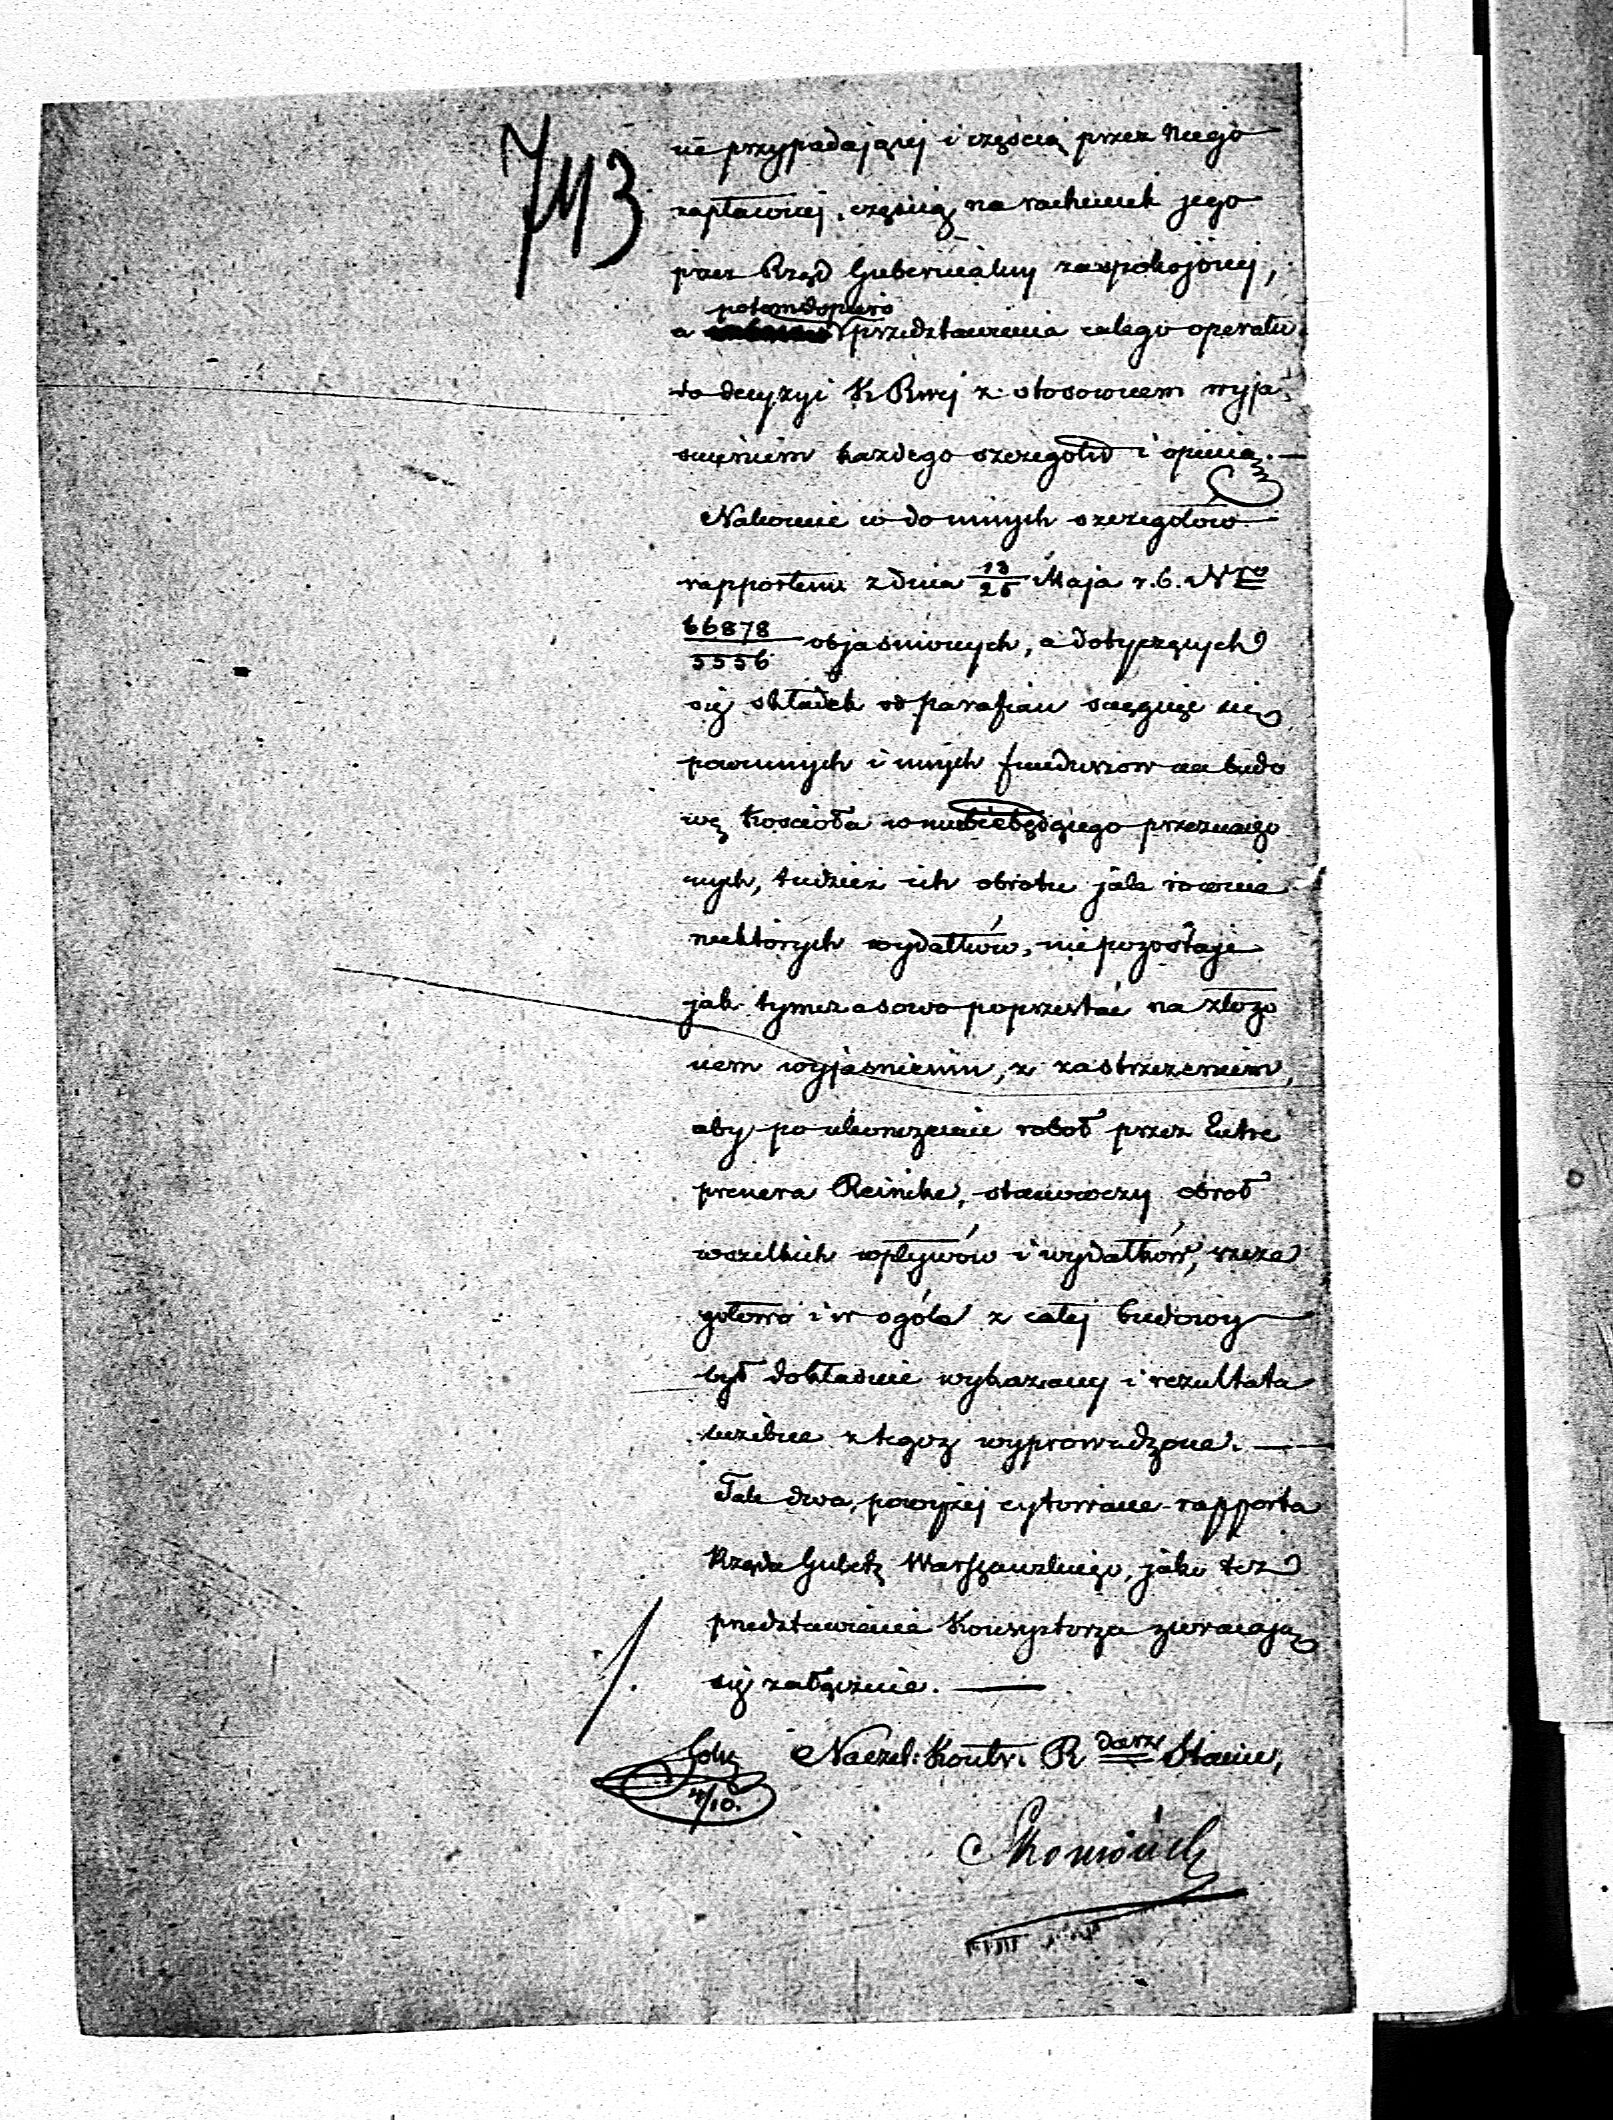 743
nę przypadającej i częścią przez Niego
zapłaconej, częścią na rachunek jego
przez Rząd Gubernialny zaspokojonej,
potem dopiero
a przedstawienia całego operatu
do decyzyi K R wej z stosownem wyja
śnieniem każdego szczegółu i opinią. —
Nakoniec co do innych szczegółów
rapportem z dnia 13/25 Maja r. b. N ro
66878/5556 objaśnionych, a dotyczących
się składek od parafian ściągnąć się
powinnych i innych funduszów na budo
wę Kościoła w mieście będącego przeznaczo
nych, tudzież ich obrotu jako równie
niektórych wydatków, niepozostaje
jak tymczasowo poprzestać na złożo
nem wyjaśnieniu, z zastrzeżeniem,
aby po ukończeniu robot przez Entre
prenera Reinike, stanowczy obrot
wszelkich wpływów i wydatków, szcze
gołowo i w ogóle z całej budowy
był dokładnie wykazany i rezultata
liczebne z tegoż wyprowadzone. —
Tak dwa, powyżej cytowane rapporta
Rządu Guber Warszawskiego, jako też
przedstawienie Konsystorza zwracają
się załącznie. —
Naczel: Kontr. R Stanu,
4/10.